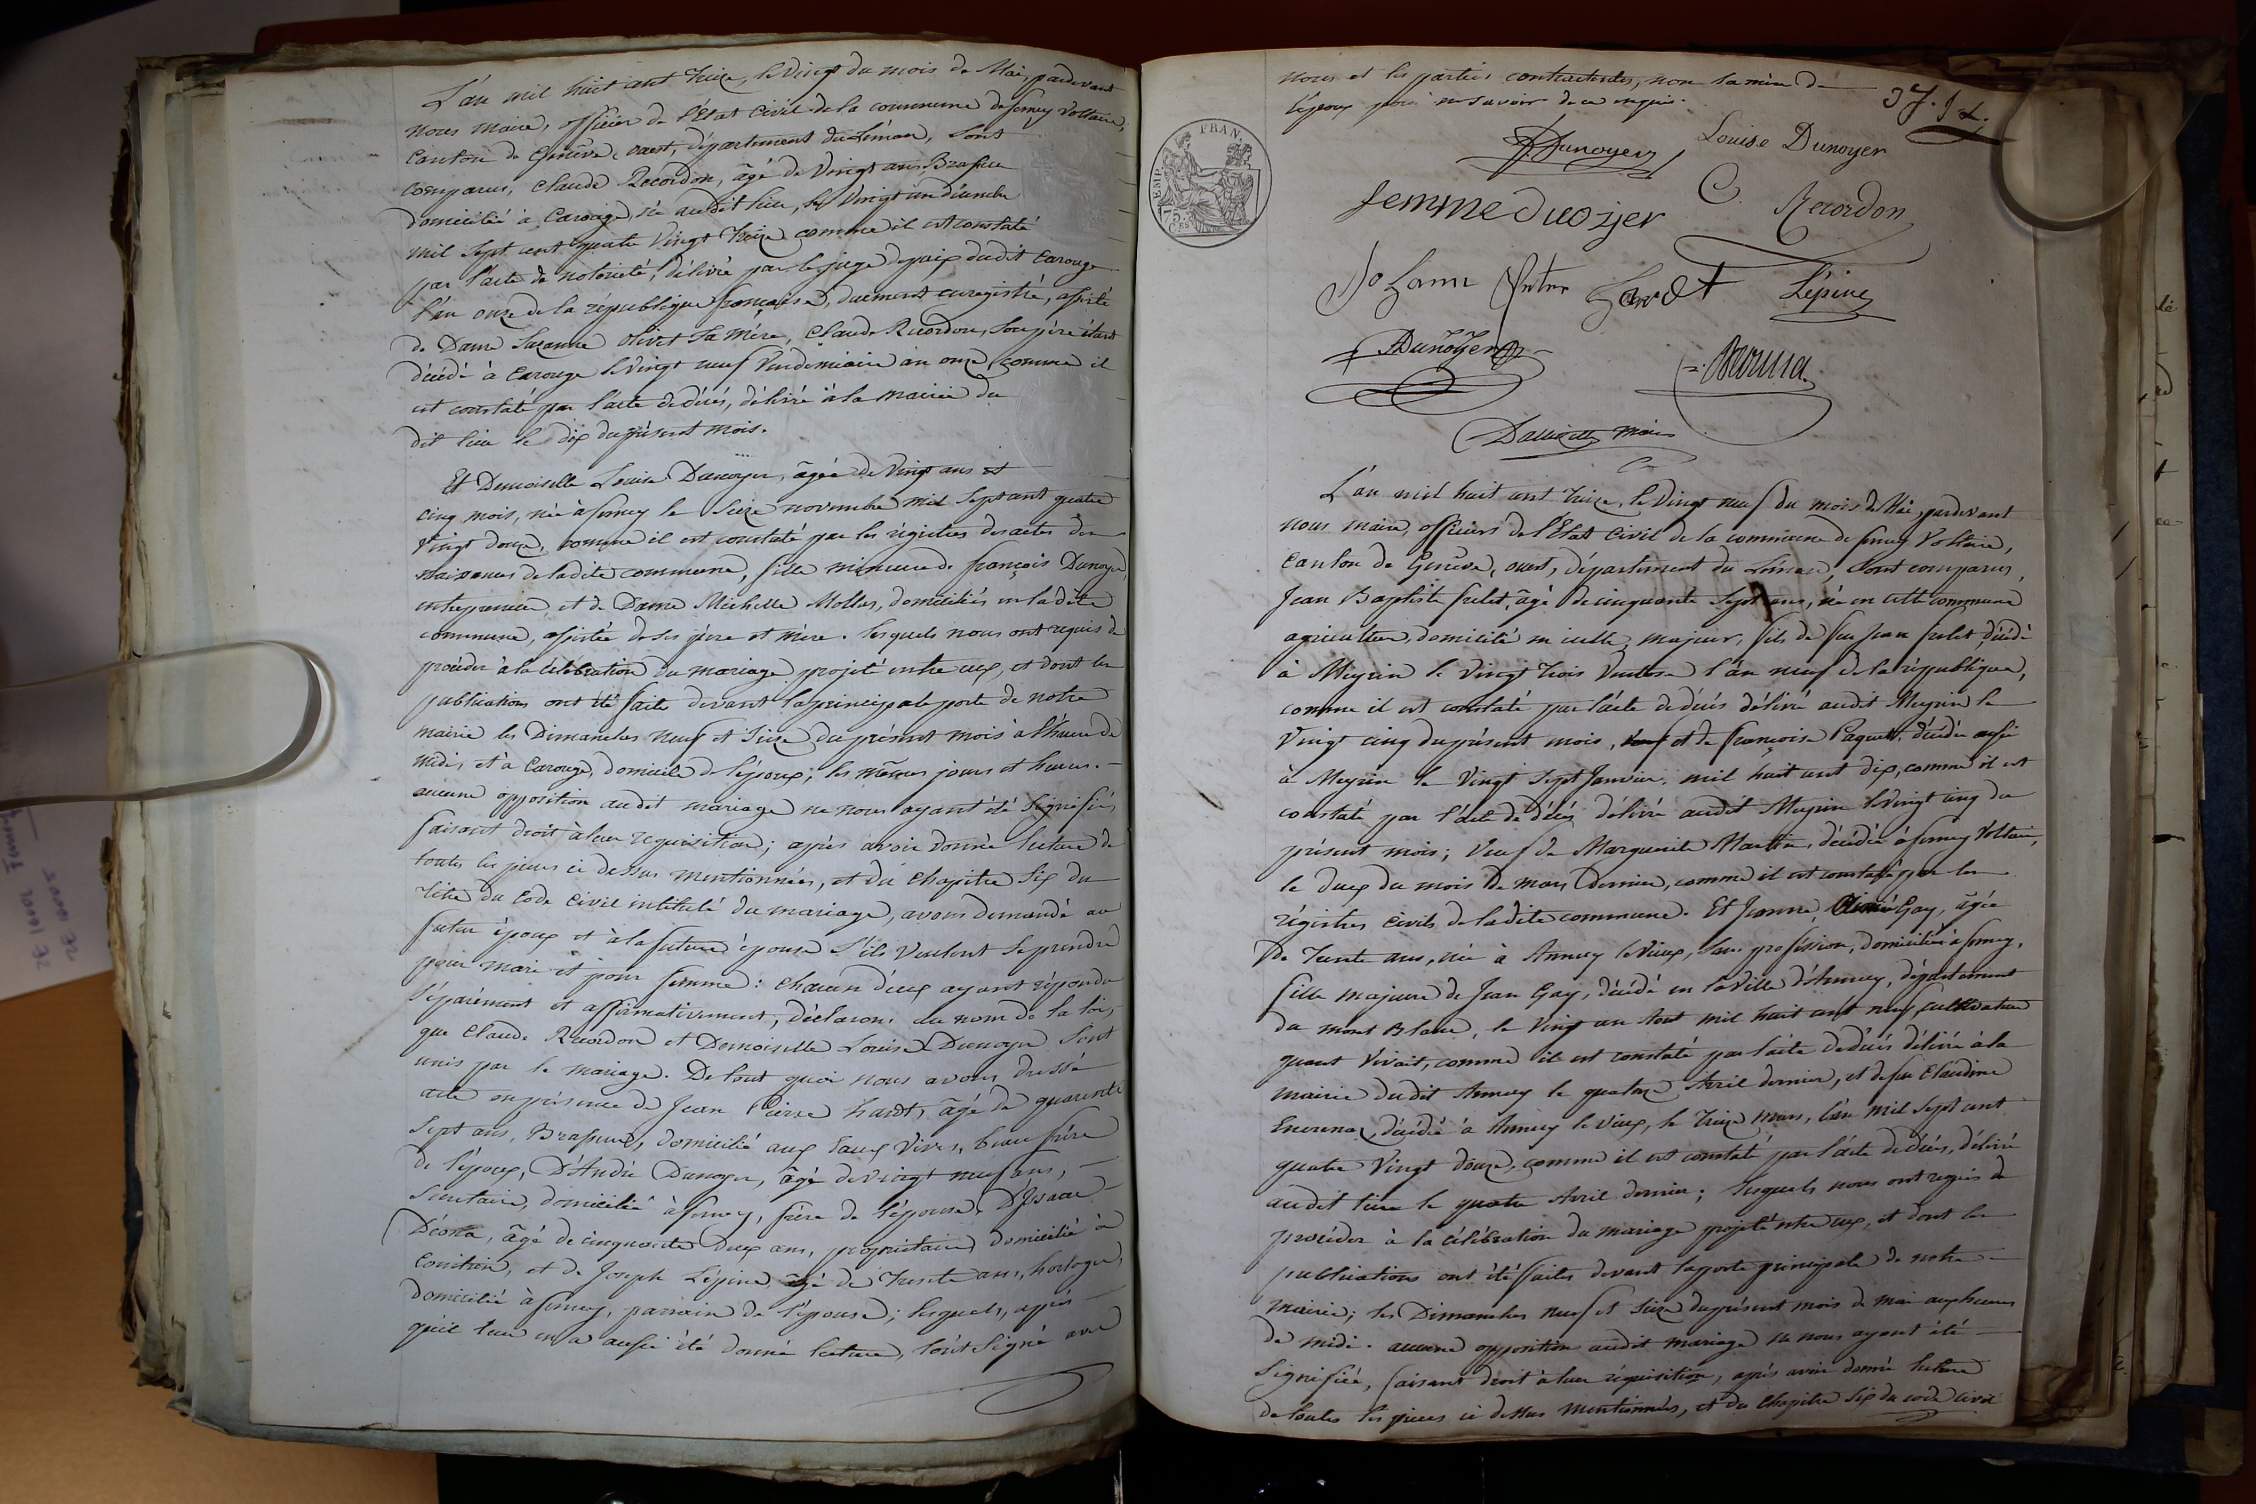 L'an mil huit cent treize, le vingt du mois de Mai, pardevant
nous maire, officier de l'Etat Civil de la commune de ferney Voltaire,
Canton de Genève, ouest, département du Léman, sont
comparus, Claude Recordon, âgé de vingt ans, Brasseur
domicilié à Carouge, né audit lieu, le vingt un
mil sept cent quatre vingt treize comme il est constaté
par l'acte de notoriété, délivré par le juge de paix dudit Carouge
l'an onze de la république française, duement enregistré, assisté
de Dame Suzanne Olivet sa Mère, Claude Recordon, son père étant
décédé à Carouge le vingt neuf Vendemiaire an onze, comme il
est constaté par l'acte de décès, délivré à la mairie du
dit lieu le dix du présent mois.
Et Demoiselle Louise Dunoyer, âgée de vingt ans et
cinq mois, née à ferney le seize novembre mil sept cent quatre
vingt douze, comme il est constaté par les régistres des actes de
naissances de ladite commune, fille mineure de françois Dunoyer,
entrepreneur et de Dame Michelle Mollas, domiciliés en ladite
commune, assistée de ses père et mère. lesquels nous ont requis de
procéder à la célébration du mariage projeté entre eux, et dont les
publications ont été faites devant la principale porte de notre
mairie les Dimanches neuf et seize du présent mois à l'heure de
midi, et à Carouge, domicile de l'époux, les mêmes jours et heures.
aucune opposition audit mariage ne nous ayant été signifiée,
faisant droit à leur requisition; après avoir donné lecture de
toutes les pièces ci dessus mentionnées, et du Chapitre six du
titre du Code Civil intitulé du mariage, avons demandé au
futur époux et à la future épouse s'ils veulent se prendre
pour mari et pour femme: chacun d'eux ayant répondu
séparément et affirmativement, déclarons au nom de la loi,
que Claude Recordon et Demoiselle Louise Dunoyer sont
unis par le mariage. De tout quoi nous avons dressé
acte en présence de Jean Pierre hardt, âgé de quarante
sept ans, Brasseur, domicilié aux Eaux Vives, beau frère
de l'époux, D'André Dunoyer, âgé de vingt neuf ans,
Secrétaire, domicilié à ferney, frère de l'épouse, D'Isaac
âgé de cinquante deux ans, propriétaire, domicilié à
et de Joseph Lépine, âgé de trente ans, horloger,
domicilié à ferney, parrain de l'épouse; lesquels, après
qu'il leur en a aussi été donné lecture, l'ont signé avec
nous et les parties contractantes, non la mère de
l'époux pour ne savoir de ce enquis.
Dunoyer
Louise Dunoyer
femme Duoijer
C. Recordon
Johann Peter Hardt
Lépine
Dunoyer
maire
L'an mil huit cent treize, le vingt neuf du mois de Mai, pardevant
nous maire, officiers de l'Etat Civil de la commune de ferney Voltaire,
Canton de Genève, ouest, département du Léman, sont comparus,
Jean Baptiste frelet, âgé de cinquante sept ans, né en cette commune
agriculteur, domicilié en icelle, majeur, fils de feu Jean frelet, décédé
à Meyrin le vingt trois Ventose l'an neuf de la république,
comme il est constaté par l'acte de décès délivré audit Meyrin le
vingt cinq du présent mois, et de françoise Paquet, décédée aussi
à Meyrin le vingt sept Janvier, mil huit cent dix, comme il est
constaté par l'acte de décès délivré audit Meyrin le vingt cinq du
présent mois; veuf de Marguerite Martin, décédée à ferney Voltaire,
le deux du mois de mars dernier, comme il est constaté par les
régistres civils de ladite commune. Et Jeanne, Gay, âgée
De trente ans, née à Annecy le vieux, sans profession, domiciliée à ferney,
fille majeure de Jean Gay, décédé en la Ville d'Annecy, département
du mont Blanc, le vingt un Aout mil huit cent neuf, cultivateur
quand vivait, comme il est constaté par l'acte de décès délivré à la
mairie dudit Annecy le quatorze Avril dernier, et de feu Claudine
décédée à Annecy le vieux, le treize mars, l'an mil sept cent
quatre vingt douze, comme il est constaté par l'acte de décès, délivré
audit lieu le quatre Avril dernier; lesquels nous ont requis de
procéder à la célébration du mariage projeté entre eux, et dont les
publications ont été faites devant la porte principale de notre
mairie; les Dimanches neuf et seize du présent mois de mai aux heures
de midi. aucune opposition audit mariage ne nous ayant été
signifiée, faisant droit à leur réquisition, après avoir donné lecture
de toutes les pièces ci dessus mentionnées, et du Chapitre six du code civil